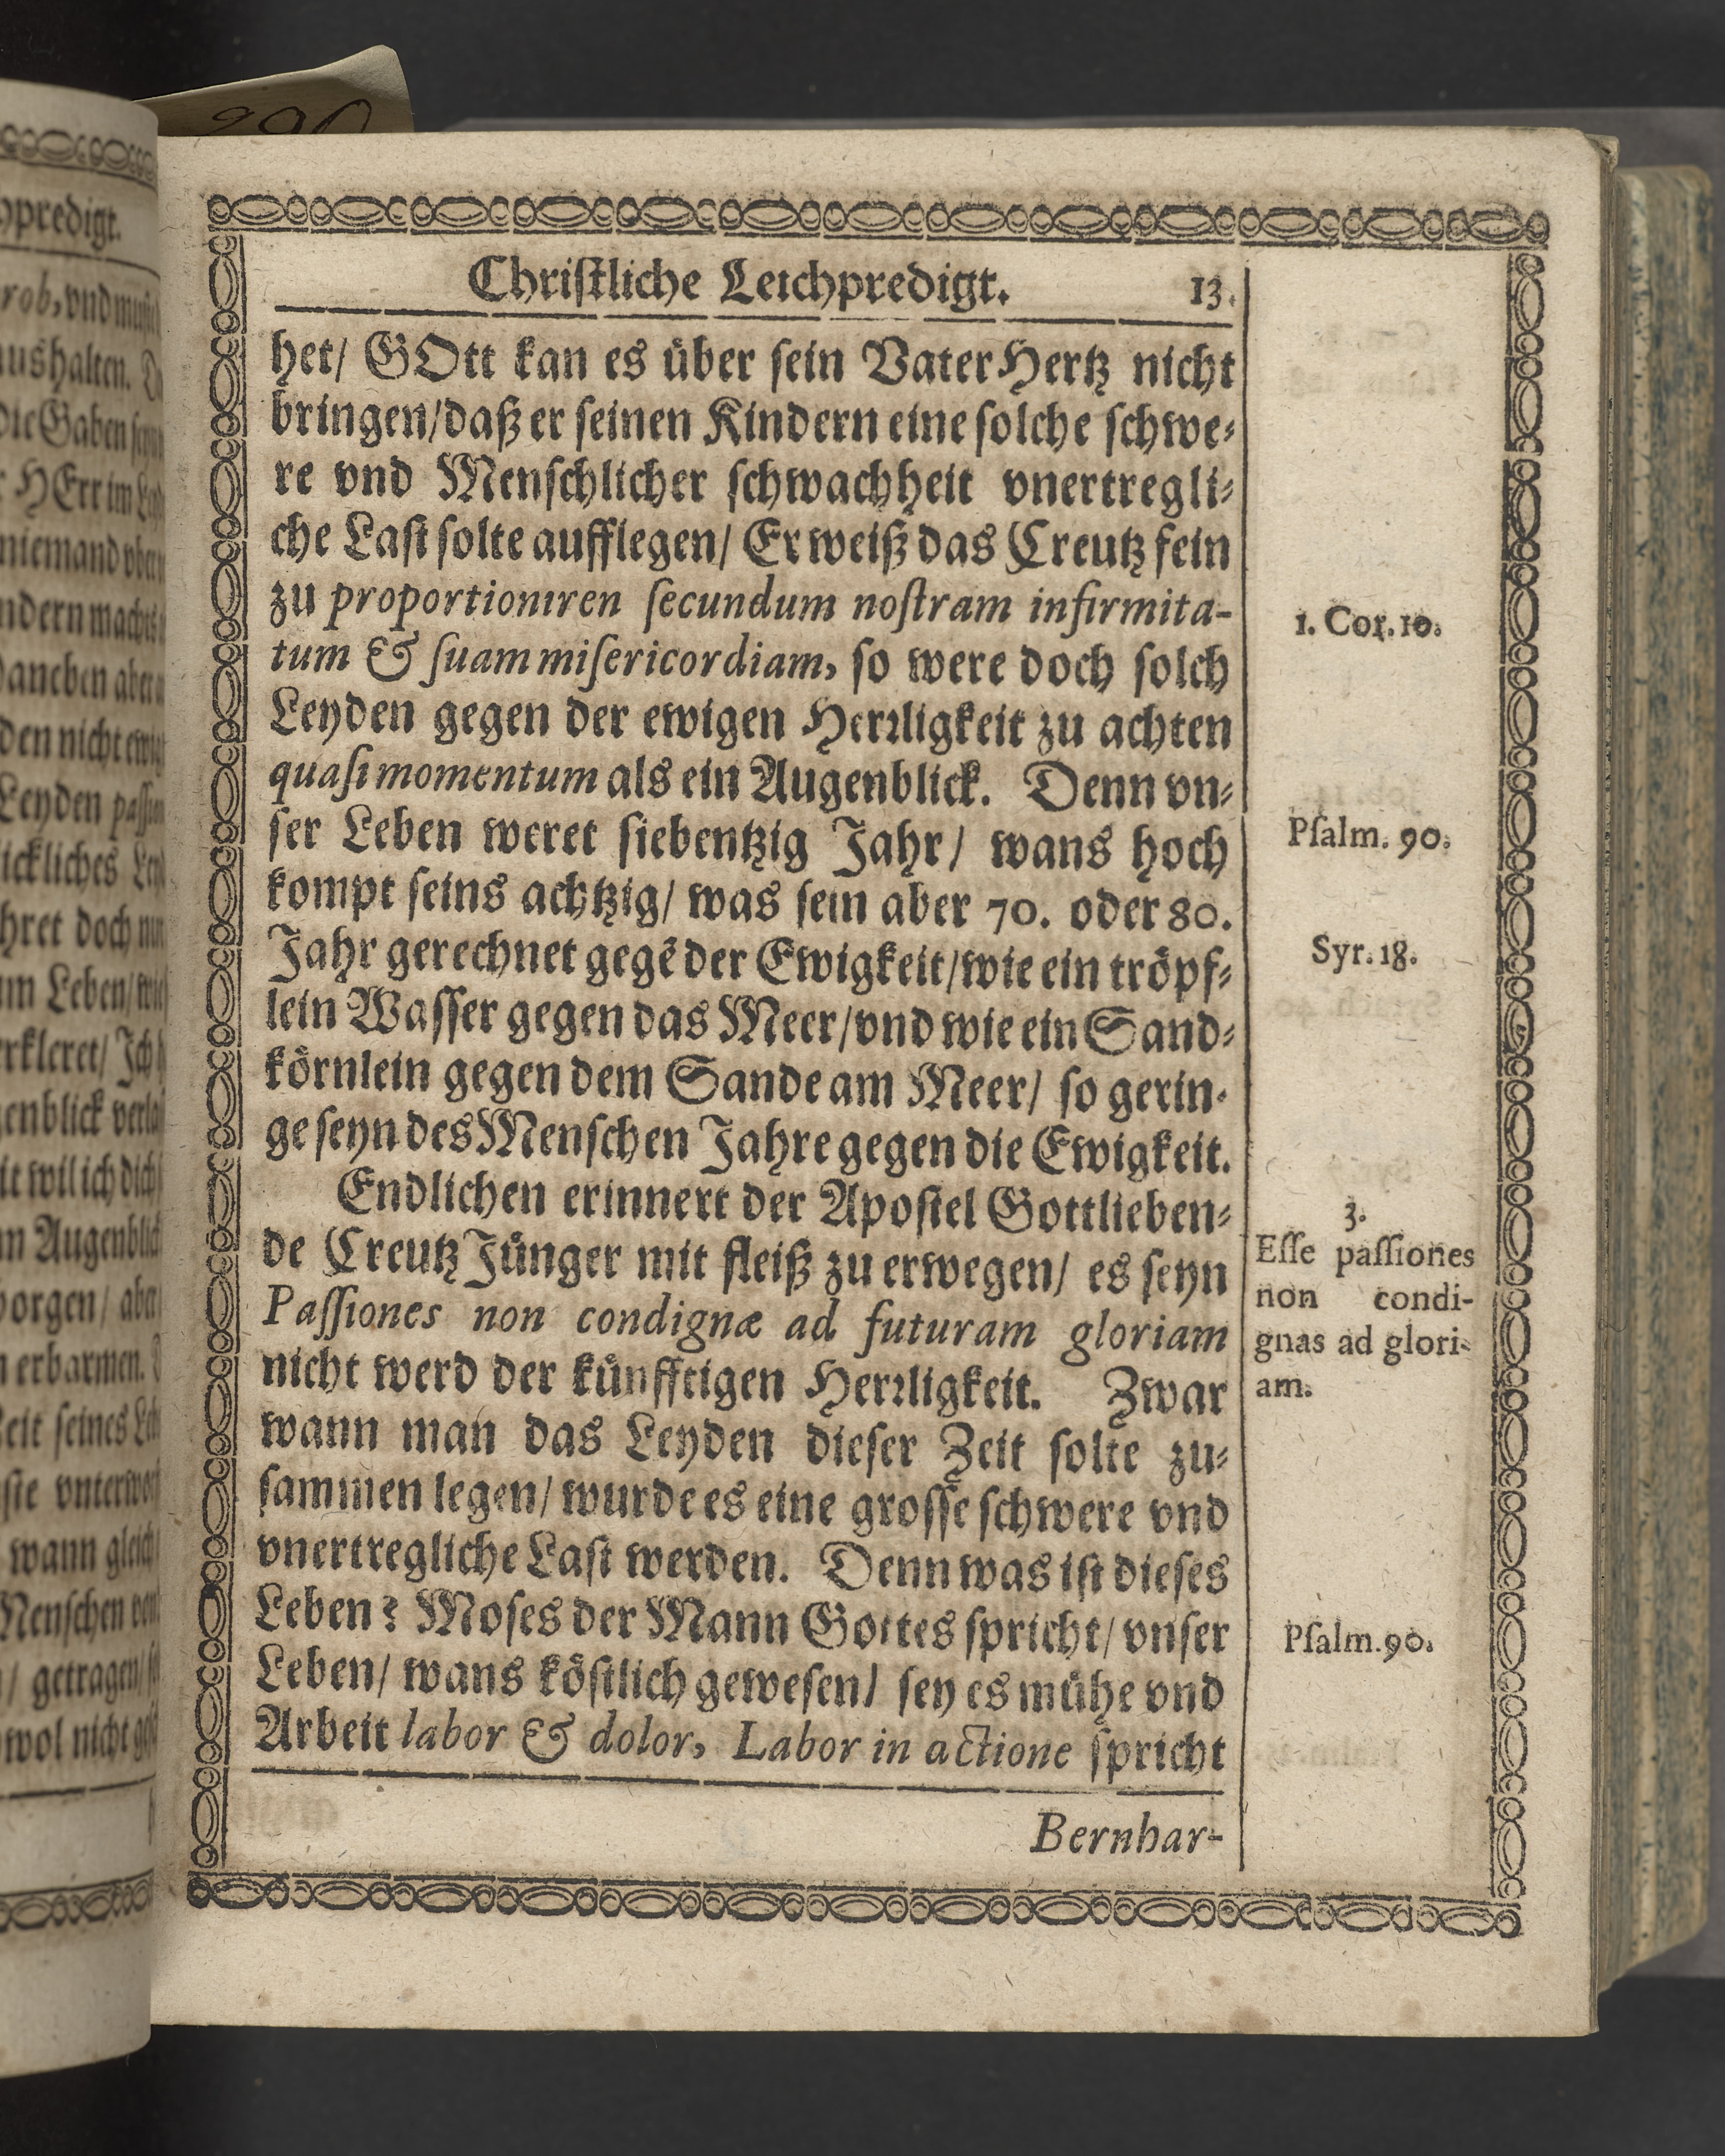 Chriſtliche Leichpredigt. 13.
het/ GOtt kan es über ſein VaterHertz nicht
bringen/daß er ſeinen Kindern eine ſolche ſchwe⸗
re vnd Menſchlicher ſchwachheit vnertregli⸗
che Laſt ſolte aufflegen/ Er weiß das Creutz fein
zu proportioniren ſecundum noſtram infirmita-
tum & ſuam miſericordiam, ſo were doch ſolch
Leyden gegen der ewigen Herꝛligkeit zu achten
quaſi momentum als ein Augenblick. Denn vn⸗
ſer Leben weret ſiebentzig Jahr/ wans hoch
kompt ſeins achtzig/ was ſein aber 70. oder 80.
Jahr gerechnet gegẽ der Ewigkeit/wie ein tröpf⸗
lein Waſſer gegen das Meer/vnd wie ein Sand⸗
körnlein gegen dem Sande am Meer/ ſo gerin⸗
ge ſeyn des Menſchen Jahre gegen die Ewigkeit.
Endlichen erinnert der Apoſtel Gottlieben⸗
de Creutz Jünger mit fleiß zu erwegen/ es ſeyn
Paſſiones non condignæ ad futuram gloriam
nicht werd der künfftigen Herꝛligkeit. Zwar
wann man das Leyden dieſer Zeit ſolte zu⸗
ſammen legen/ wurde es eine groſſe ſchwere vnd
vnertregliche Laſt werden. Denn was iſt dieſes
Leben? Moſes der Mann Gottes ſpricht/ vnſer
Leben/ wans köſtlich geweſen/ ſey es mühe vnd
Arbeit labor & dolor, Labor in actione ſpricht
Bernhar-
1. Cor. 10.
Pſalm. 90.
Syr. 18.
3.
Eſſe paſſiones
non condi-
gnas ad glori-
am.
Pſalm. 90.